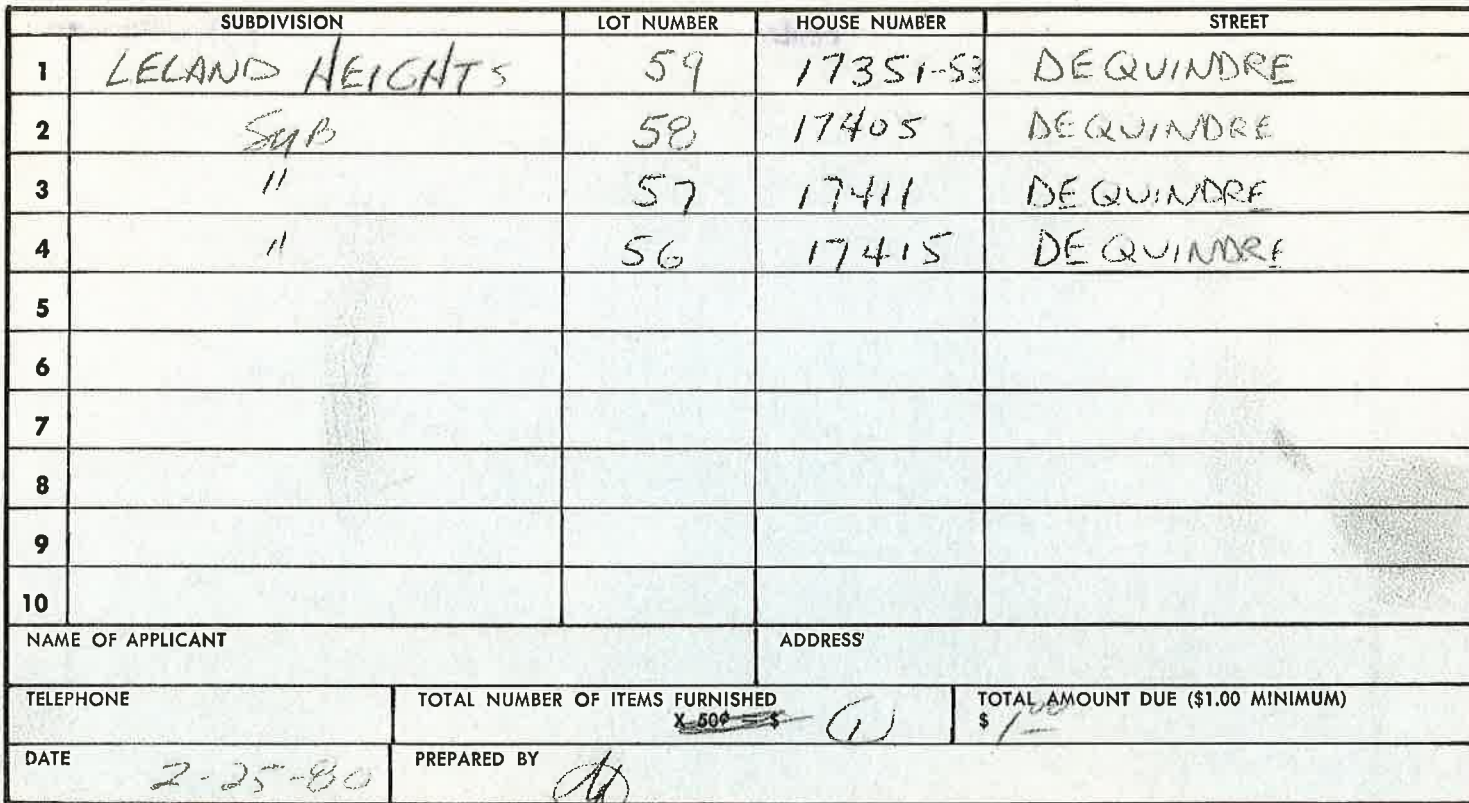 SUBDIVISION LOT NUMBER HOUSE NUMBER STREET
1 LELAND HEIGHTS 59 17351-53 DEQUINDRE
2 SUB 58 17405 DEQUINDRE
3 " 57 17411 DEQUINDRE
4 " 56 17415 DEQUINDRE
5
6
7
8
9
10
NAME OF APPLICANT ADDRESS
TELEPHONE TOTAL NUMBER OF ITEMS FURNISHED TOTAL AMOUNT DUE ($1.00 MINIMUM)
X 50¢ = $ (1) $ 1.00
DATE 2-25-80 PREPARED BY